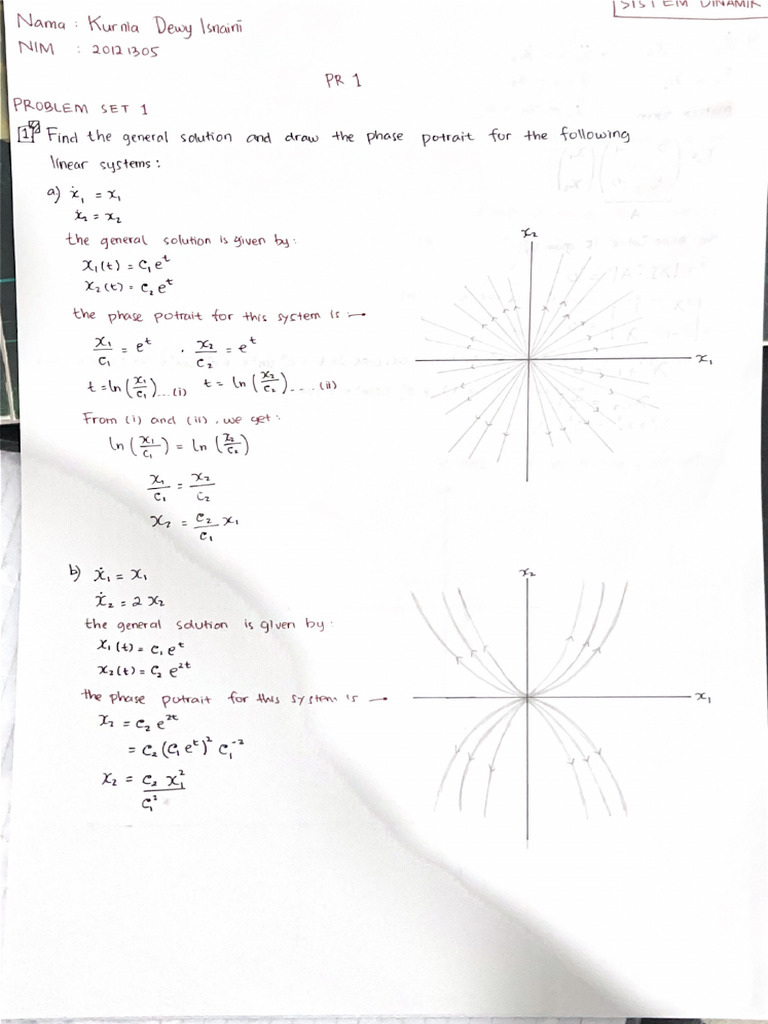 SISTEM DINAMIK
Nama : Kurnia Dewy Isnaini
NIM : 20121305
PR 1
PROBLEM SET 1
1. Find the general solution and draw the phase potrait for the following
linear systems :
a) ẋ₁ = x₁
ẋ₂ = x₂
the general solution is given by :
x₁(t) = c₁eᵗ
x₂(t) = c₂eᵗ
the phase potrait for this system is →
x₁/c₁ = eᵗ , x₂/c₂ = eᵗ
t = ln(x₁/c₁) ...(i) t = ln(x₂/c₂) ....(ii)
From (i) and (ii), we get :
ln(x₁/c₁) = ln(x₂/c₂)
x₁/c₁ = x₂/c₂
x₂ = c₂/c₁ x₁
x₂
x₁
b) ẋ₁ = x₁
ẋ₂ = 2x₂
the general solution is given by :
x₁(t) = c₁eᵗ
x₂(t) = c₂e²ᵗ
the phase potrait for this system is →
x₂ = c₂e²ᵗ
= c₂(c₁eᵗ)² c₁⁻²
x₂ = c₂ x₁²/c₁²
x₂
x₁